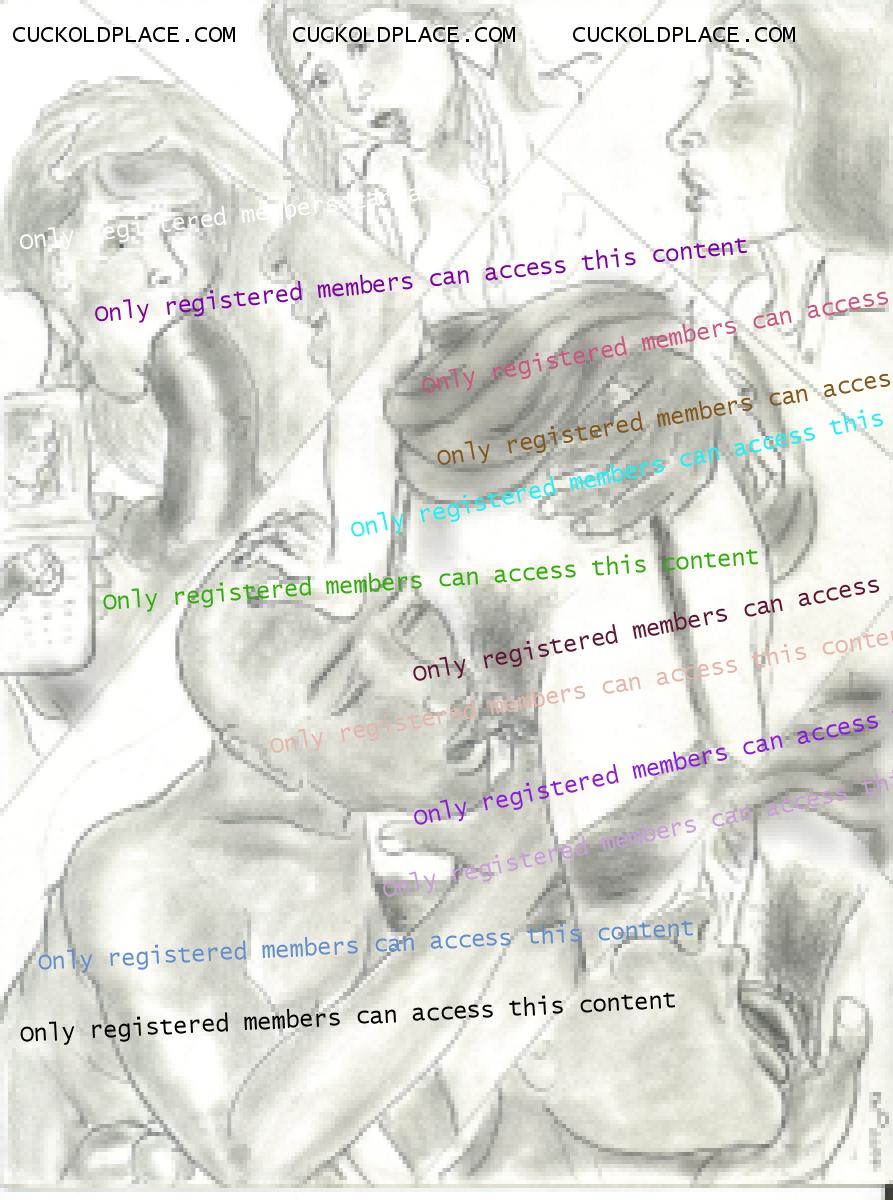 CUCKOLDPLACE.COM CUCKOLDPLACE.COM CUCKOLDPLACE.COM
Only registered members can ac
Only registered members can access this content
Only registered members can access
Only registered members can acces
Only registered members can access this
Only registered members can access this content
Only registered members can access
Only registered members can access this conte
Only registered members can access
Only registered members can access thi
Only registered members can access this content
Only registered members can access this content